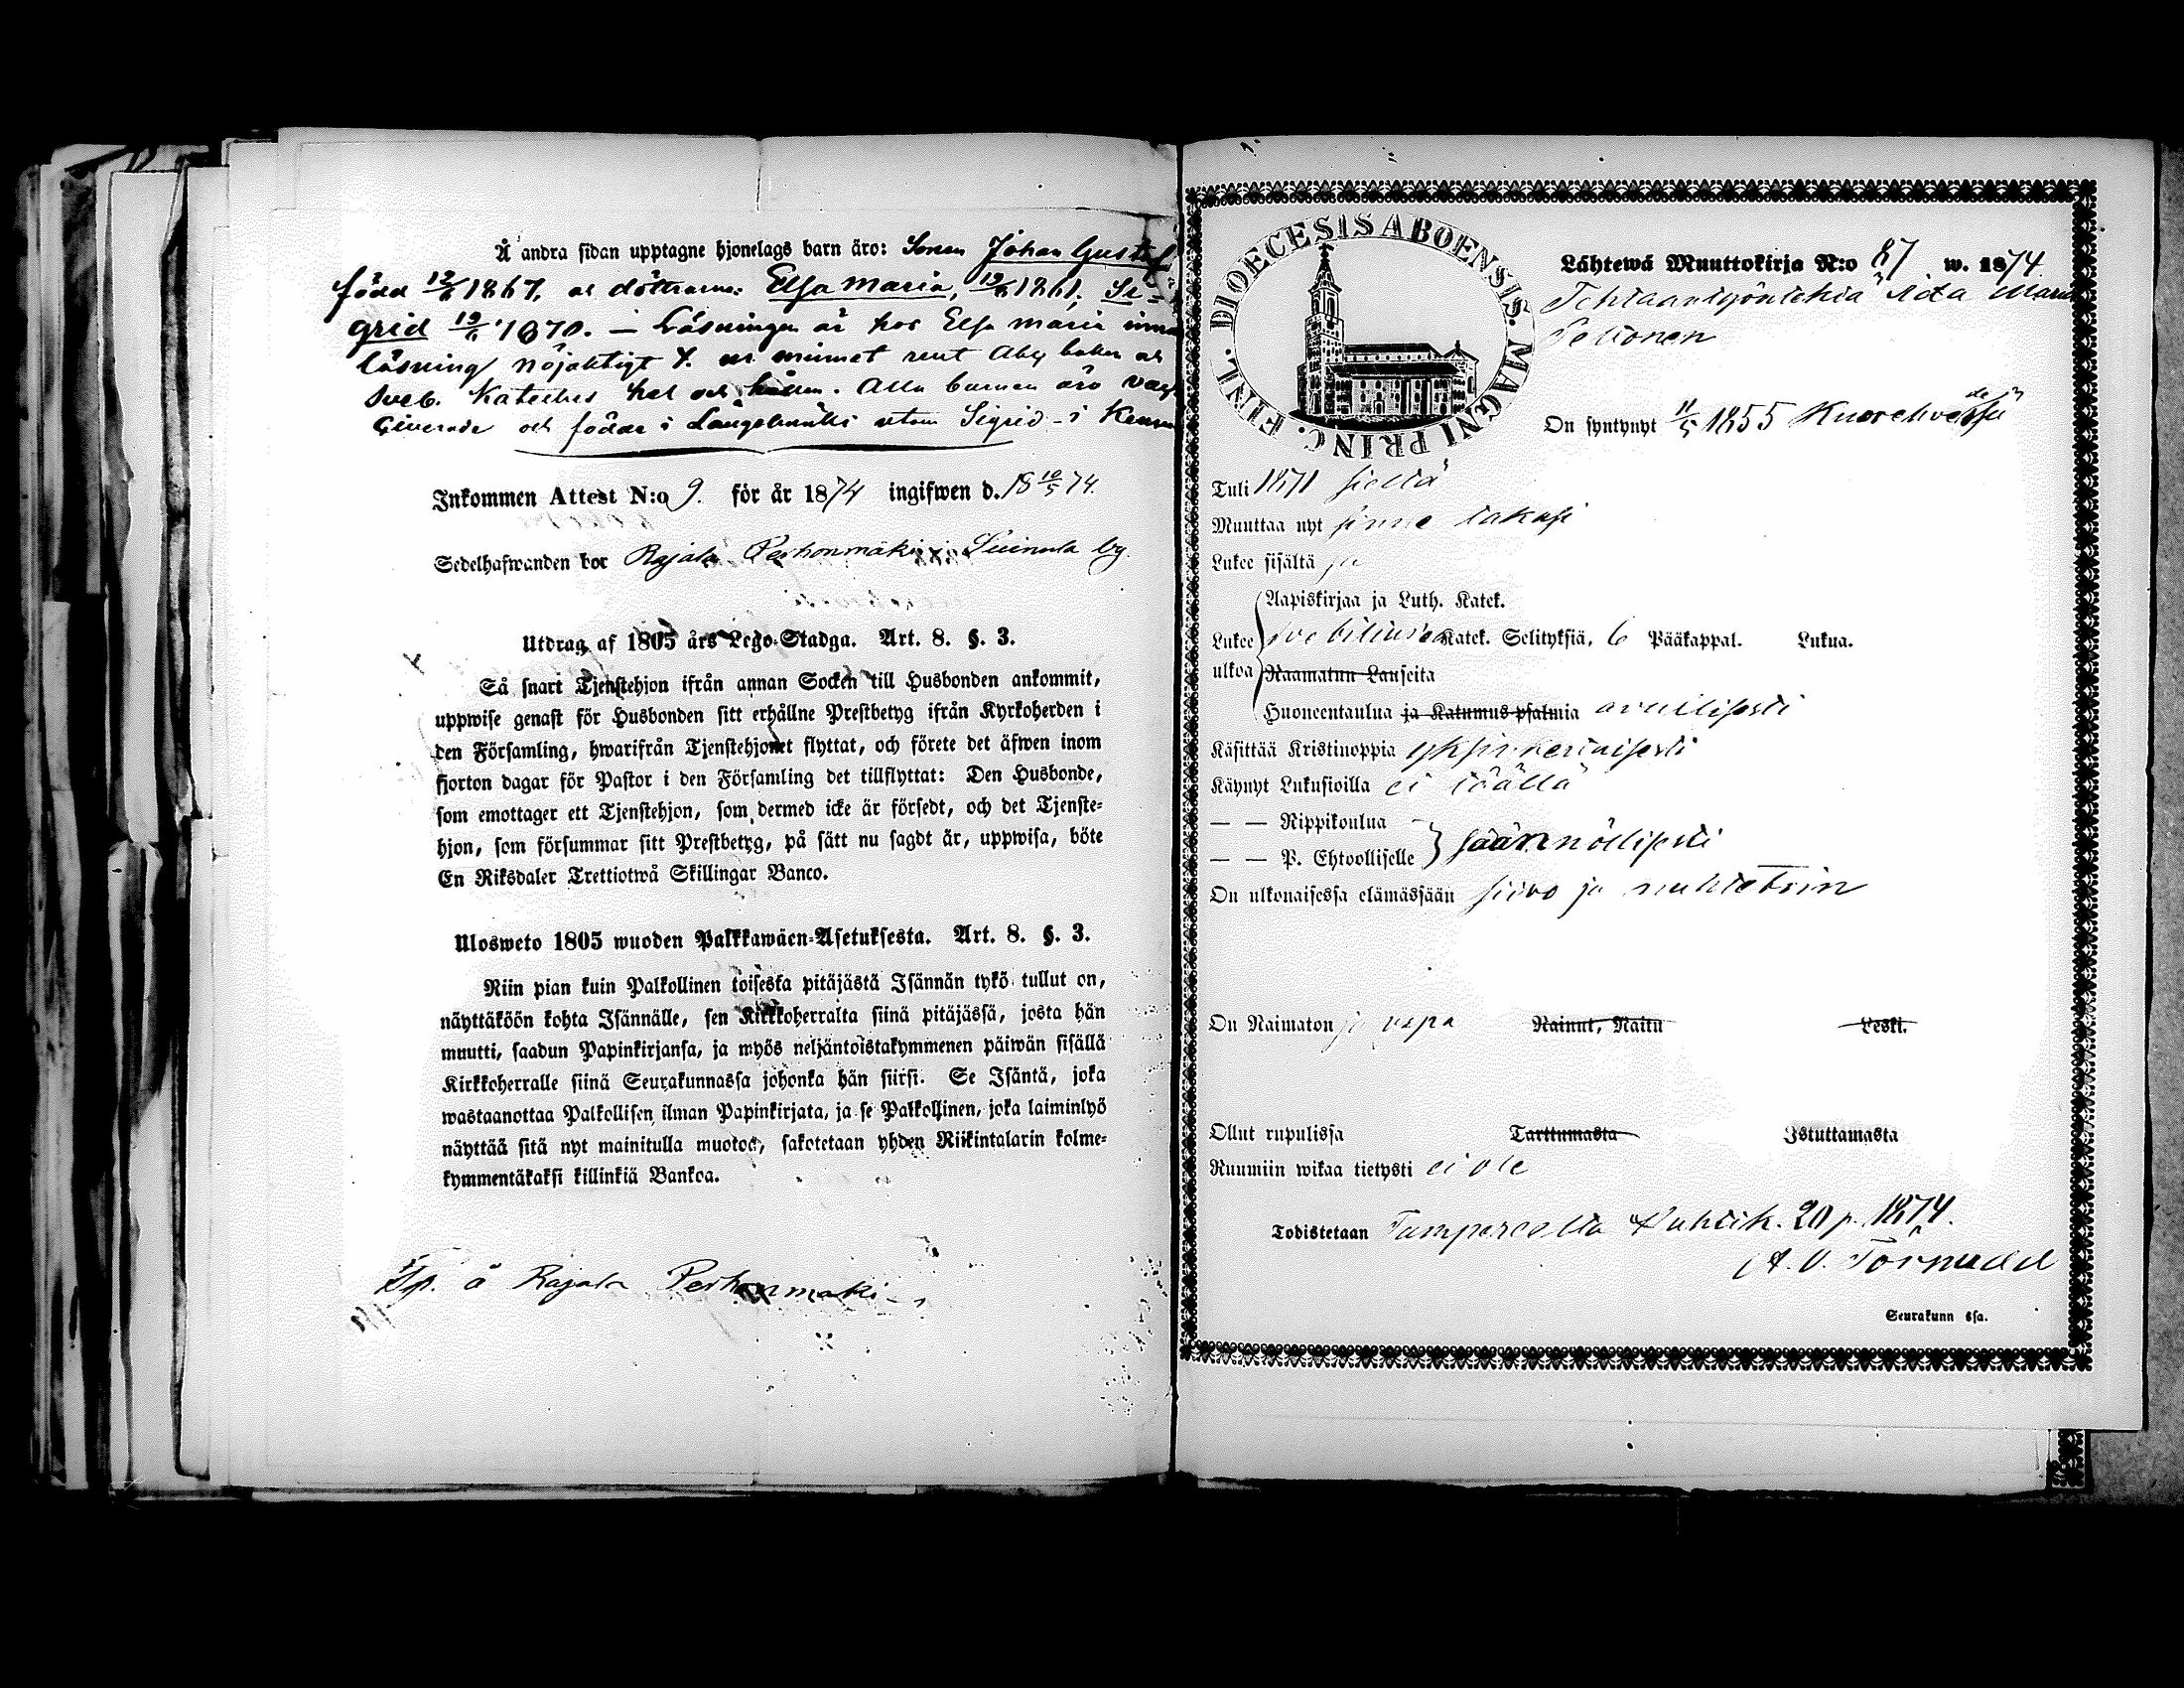 Å andra sidan upptagne hjonelags barn äro: Sonen Johan Gustaf
född 12/6 1867, och döttrarne: Elsa Maria, 1861, Si-
grid 19/6 1870. — Läsningen är hos Elsa Maria
läsning nöjaktigt minnet rent Aby boken och
Sveb. Kateches hel och hållen. Alla barnen äro vac-
cinerade och födde i Längelmäki utom Sigrid i
Inkommen Attest N:o 9. för år 1874 ingifwen d. 18 10/5 74.
Sedelhafwanden bor Rajala Perhonmäki i Suinula by.
Utdrag af 1805 års Lego-Stadga. Art. 8. §. 3.
Så snart Tjenstehjon ifrån annan Socken till Husbonden ankommit,
uppwise genast för Husbonden sitt erhållne Prestbetyg ifrån Kyrkoherden i
den Församling, hwarifrån Tjenstehjonet flyttat, och förete det äfwen inom
fjorton dagar för Pastor i den Församling det tillflyttat: Den Husbonde,
som emottager ett Tjenstehjon, som dermed icke är försedt, och det Tjenste-
hjon, som försummar sitt Prestbetyg, på sätt nu sagdt är, uppwisa, böte
En Riksdaler Trettiotwå Skillingar Banco.
Ulosweto 1805 wuoden Palkkawäen-Asetuksesta. Art. 8. §. 3.
Niin pian kuin Palkollinen toisesta pitäjästä Isännän tykö tullut on,
näyttäköön kohta Isännälle, sen Kirkkoherralta siinä pitäjässä, josta hän
muutti, saadun Papinkirjansa, ja myös neljäntoistakymmenen päiwän sisällä
Kirkkoherralle siinä Seurakunnassa johonka hän siirsi. Se Isäntä, joka
wastaanottaa Palkollisen ilman Papinkirjata, ja se Palkollinen, joka laiminlyö
näyttää sitä nyt mainitulla muotoa, sakotetaan yhden Riikintalarin kolme-
kymmentäkaksi killinkiä Bankoa.
Isp. å Rajala Perhonmäki
FINL. DIOECESIS ABOENSIS. MAGNI PRINC.
Lähtewä Muuttokirja N:o 87 w. 1874.
Tehtaantyöntekiä Iida Maria
Peltonen
On syntynyt 11/5 1855 Kuorehvedellä
Tuli 1871 sieltä
Muuttaa nyt sinne takasi
Lukee sisältä ja
Aapiskirjaa ja Luth. Katek.
Lukee Svebiliuksen Katek. Selityksiä, 6 Pääkappal. Lukua.
ulkoa Raamatun Lauseita
Huoneentaulua ja Katumus-psalmia avullisesti
Käsittää Kristinoppia yksinkertaisesti
Käynyt Lukusioilla ei täällä
— — Rippikoulua
— — P. Ehtoolliselle säännöllisesti
On ulkonaisessa elämässään siivo ja nuhteetoin
On Naimaton ja vapa Nainut, Naitu Leski.
Ollut rupulissa Tarttumasta Istuttamasta
Ruumiin wikaa tietysti ei ole
Todistetaan Tampereella Huhtik. 20 p. 1874.
A. O. Törnudd
Seurakunn ssa.